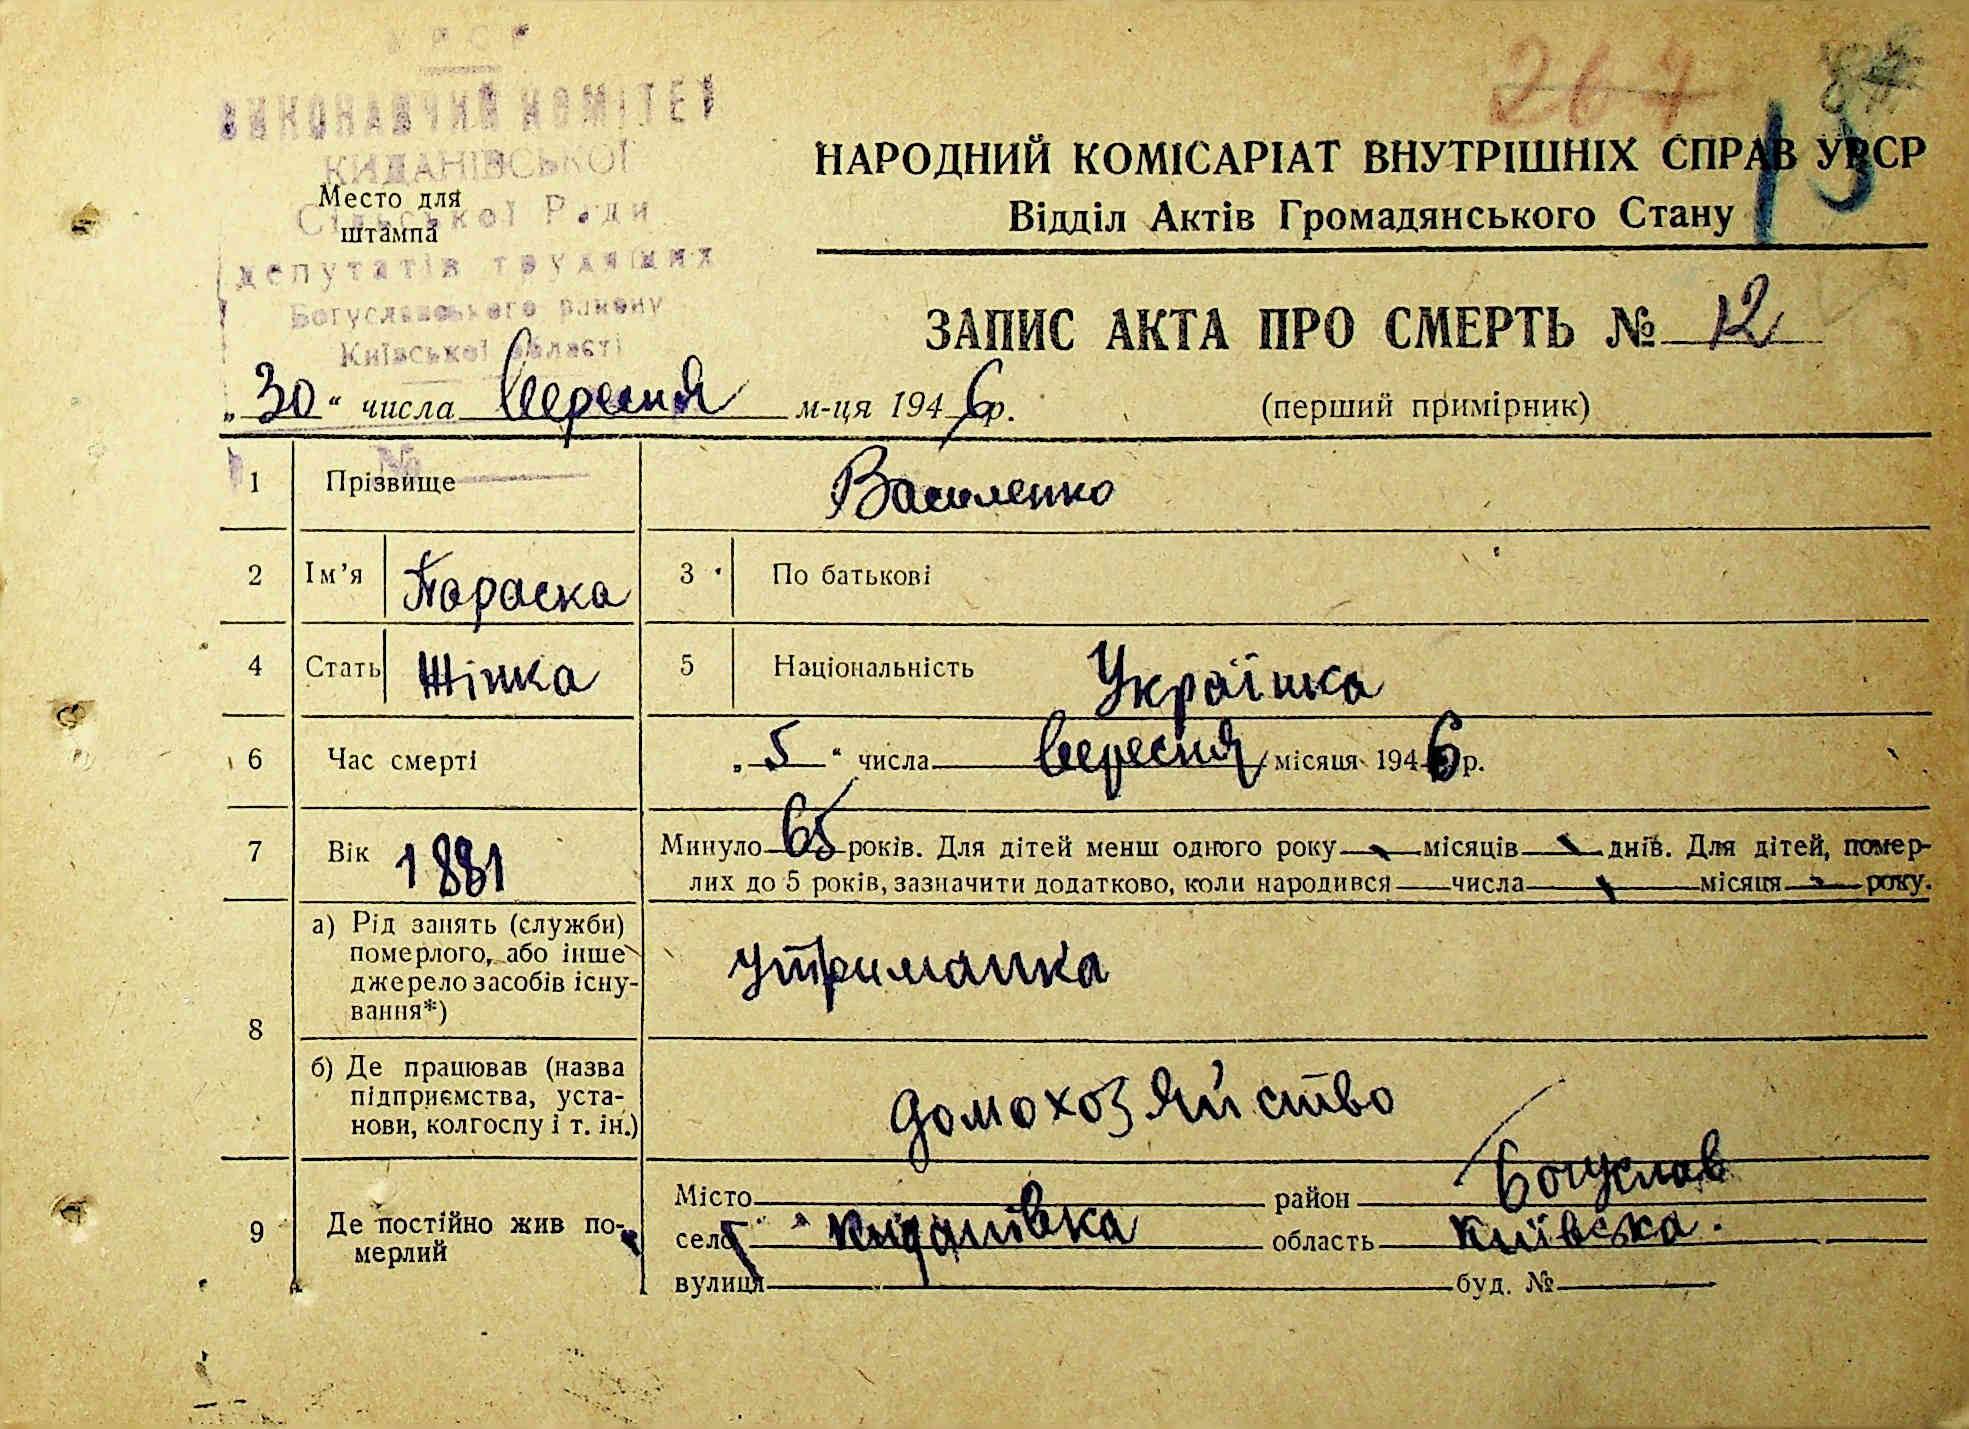 УРСР
ВИКОНАВЧИЙ КОМІТЕТ
КИДАНІВСЬКОЇ
Сільської Ради
депутатів трудящих
Богуславського району
Київської області
№
Место для
штампа
267
87
13
НАРОДНИЙ КОМІСАРІАТ ВНУТРІШНІХ СПРАВ УРСР
Відділ Актів Громадянського Стану
ЗАПИС АКТА ПРО СМЕРТЬ № 12
„30“ числа вересня м-ця 1946 р.
(перший примірник)
1 Прізвище Василенко
2 Ім’я Параска 3 По батькові
4 Стать Жінка 5 Національність Українка
6 Час смерті „5“ числа вересня місяця 1946 р.
7 Вік 1881 Минуло 65 років. Для дітей менш одного року - місяців - днів. Для дітей, помер-
лих до 5 років, зазначити додатково, коли народився числа - місяця - року.
8 а) Рід занять (служби)
померлого, або інше
джерело засобів існу-
вання*)
утриманка
б) Де працював (назва
підприємства, уста-
нови, колгоспу і т. ін.)
домохозяйство
9 Де постійно жив по-
мерлий
Місто район Богуслав
село Киданівка область Київська.
вулиця буд. №